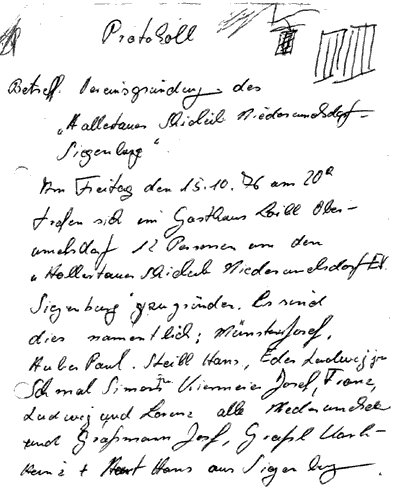 Protokoll
Betreff. Vereinsgründung des
„Hallertauer Skiclub Niederumelsdorf-
Siegenburg"
Am Freitag den 15.10.76 am 20°
trafen sich im Gasthaus Loibl Ober-
umelsdorf 12 Personen um den
„Hallertauer Skiclub Niederumelsdorf
Siegenburg" zu gründen. Es sind
dies namentlich; Münsterer Josef,
Huber Paul. Steibl Hans, Eder Ludwig jr
Schmal Simon Kiermeier Josef, Franz,
Ludwig und Lorenz alle Niederumels
und Graßmann Josef, Graßl Karl-
Heinz + Hans aus Siegenburg.